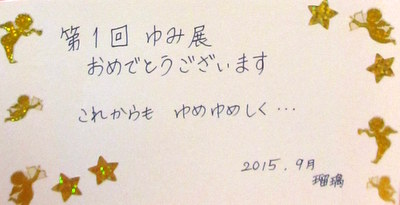 第1回 ゆみ展
おめでとうございます
これからも ゆめゆめしく…
2015.9月
瑠璃